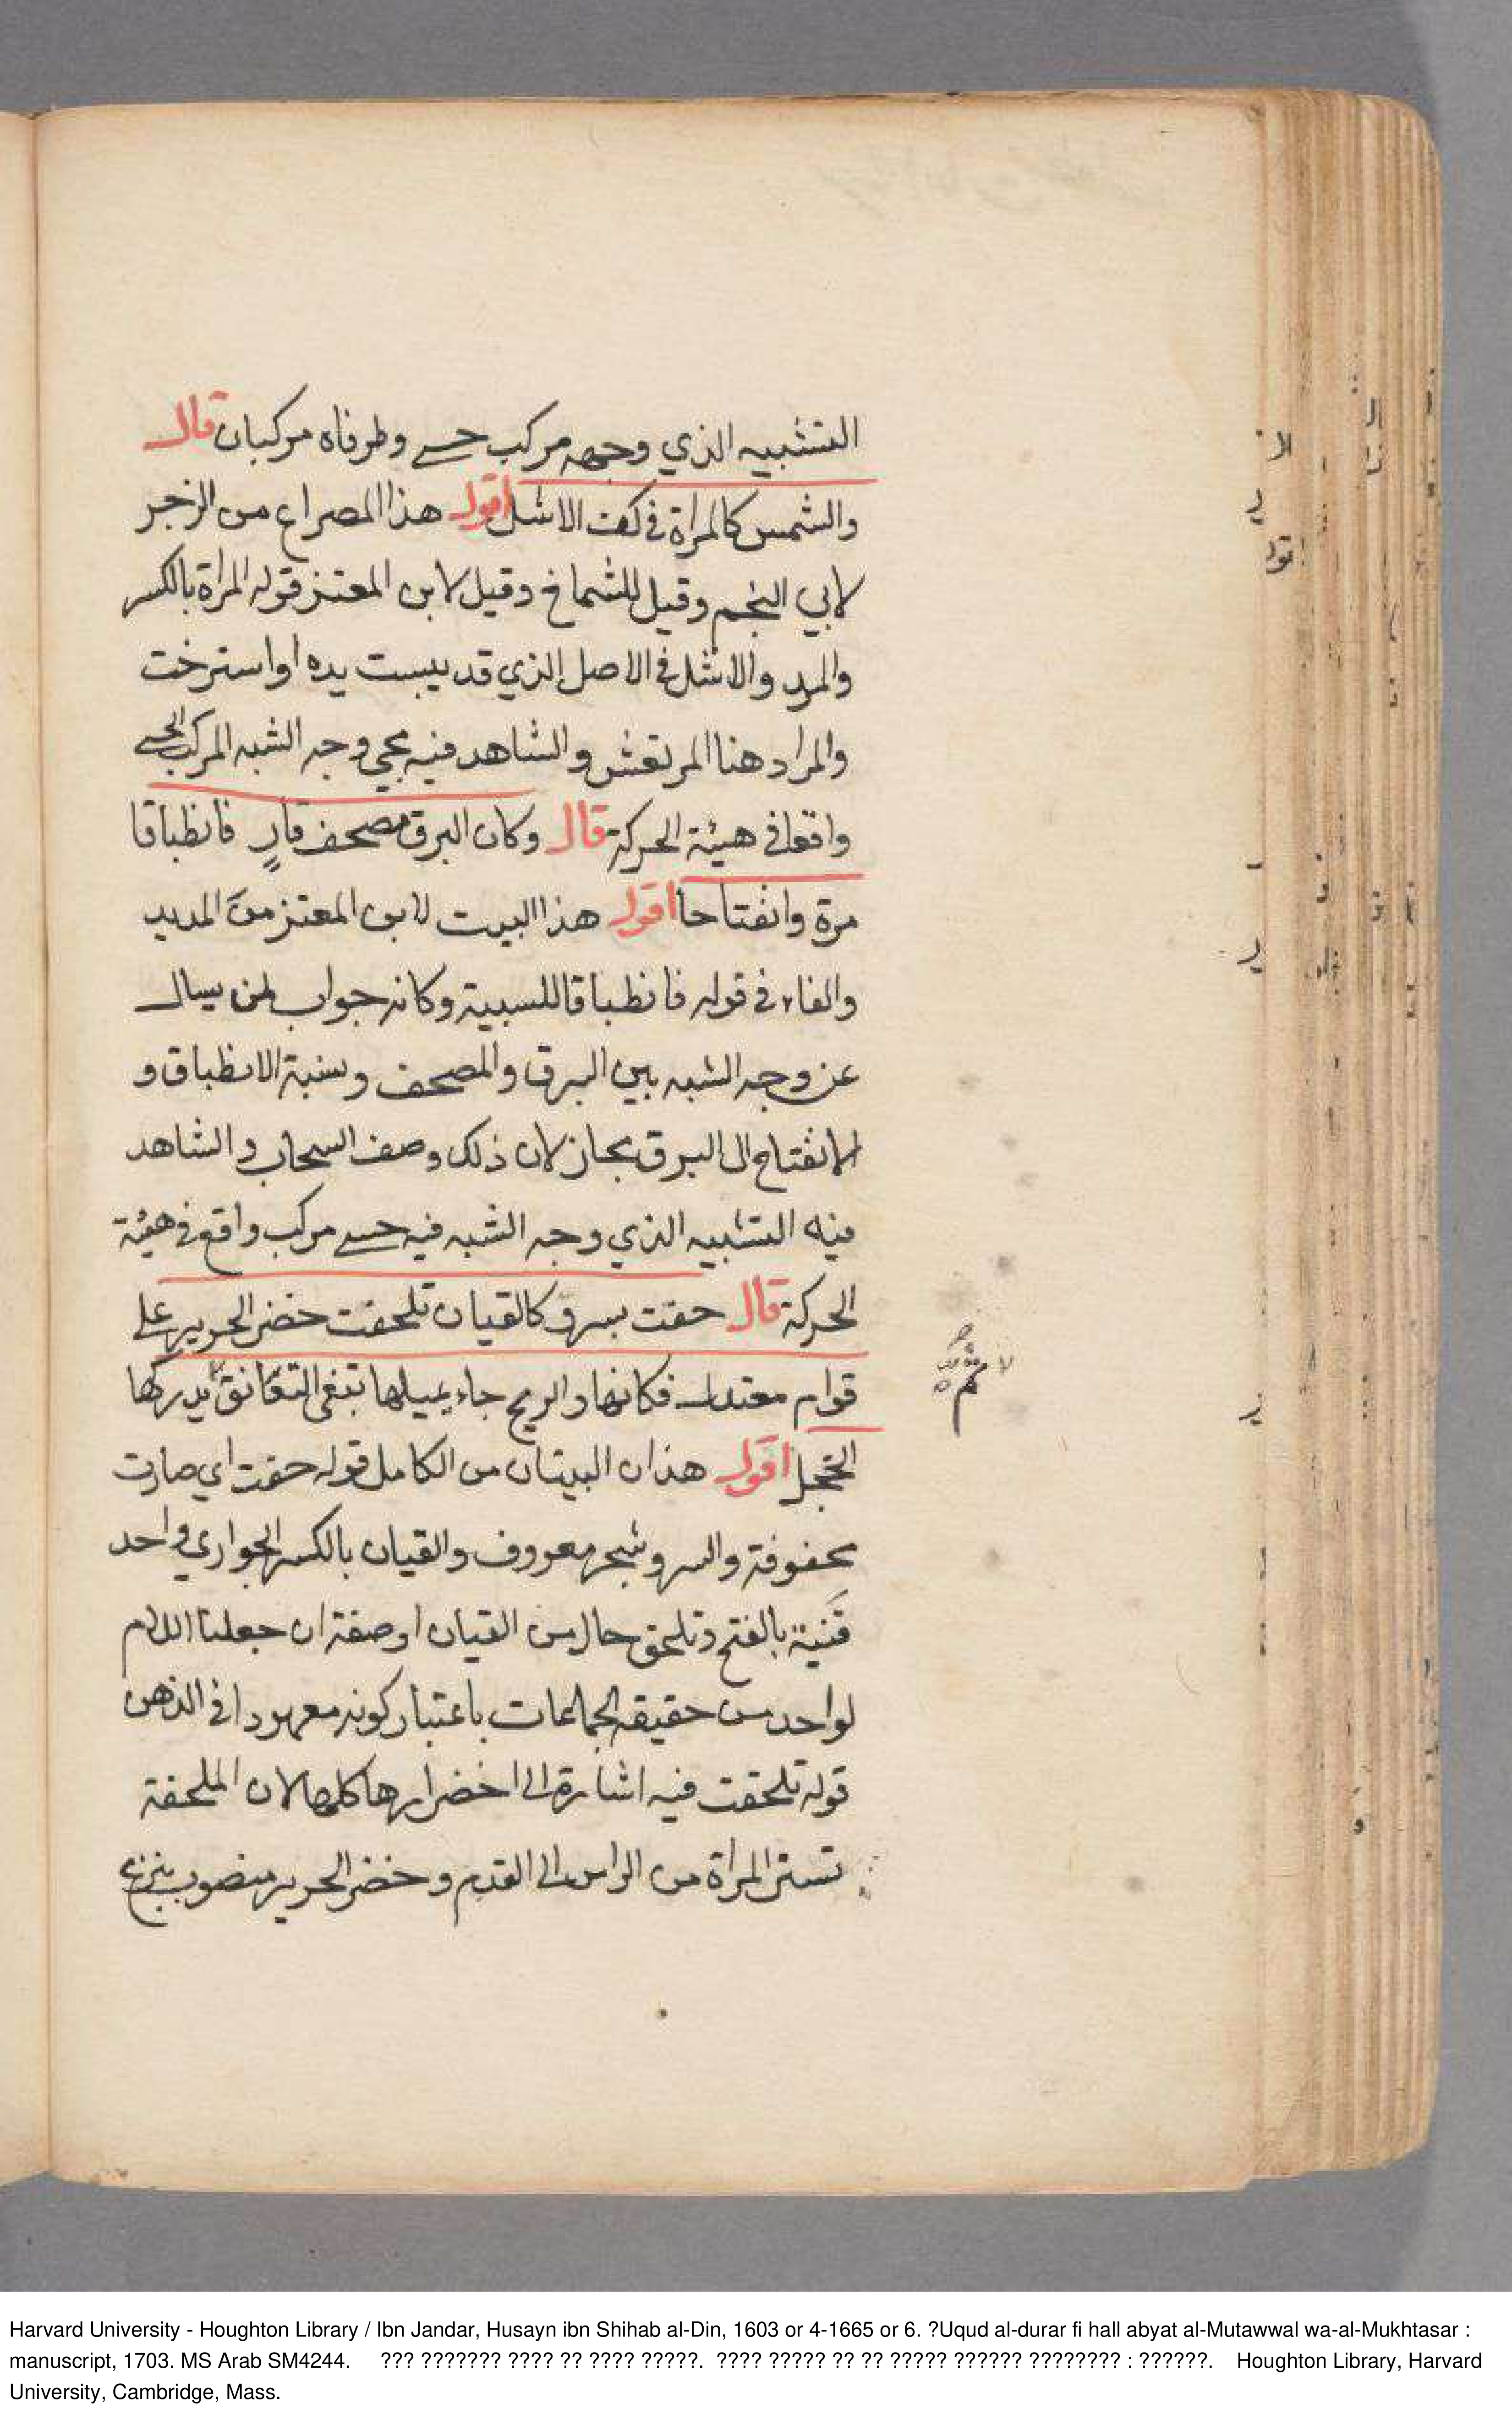 التشبيه الذي وجهه مركب حسي وطرفاه مركبان قال
والشمس كالمرآة في كف الاشل اقول هذا المصراع من الرجز
لابي النجم وقيل للشماخ وقيل لابن المعتز قوله المرآة بالكسر
والمد والاشل في الاصل الذي قد يبست يده او استرخت
والمراد هنا المرتعش والشاهد فيه مجي وجه الشبه المركب الحسي
واقعا في هيئة الحركة قال وكان البرق مصحف قارٍ فانطباقا
مرة وانفتاحا اقول هذا البيت لابن المعتز من المديد
والفاء في قوله فانطباقا للسببية وكانه جواب لمن يسال
عن وجه الشبه بين البرق والمصحف ونسبة الانطباق و
الانفتاح الى البرق مجاز لان ذلك وصف السحاب والشاهد
فيه التشبيه الذي وجه الشبه فيه حسي مركب واقع في هيئة
الحركة قال حفت بسرو كالقيان تلحفت خضر الحرير على
قوام معتدل فكانها والريح جاء يميلها تبغي التعانق ثم يدركها
الخجل اقول هذان البيتان من الكامل قوله حفت اي صارت
محفوفة والسرو شجر معروف والقيان بالكسر الجواري واحد
قَنية بالفتح وتلحق حال من القيان او صفة ان جعلنا اللام
لواحد من حقيقة الجماعات باعتبار كونه معهودا في الذهن
قوله تلحفت فيه اشارة الى اخضرارها كلها لان الملحفة
تستر المرأة من الراس الى القدم وخضر الحرير منصوب بنزع
Harvard University - Houghton Library / Ibn Jandar, Husayn ibn Shihab al-Din, 1603 or 4-1665 or 6. ?Uqud al-durar fi hall abyat al-Mutawwal wa-al-Mukhtasar :
manuscript, 1703. MS Arab SM4244. ??? ??????? ???? ?? ???? ?????. ???? ????? ?? ?? ????? ?????? ???????? : ??????. Houghton Library, Harvard
University, Cambridge, Mass.